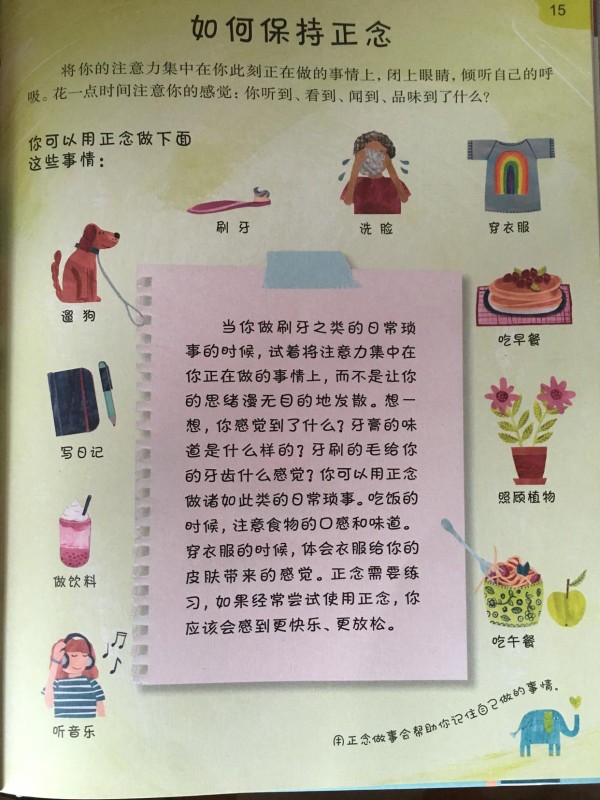 15
如何保持正念
将你的注意力集中在你此刻正在做的事情上，闭上眼睛，倾听自己的呼
吸。花一点时间注意你的感觉：你听到、看到、闻到、品味到了什么？
你可以用正念做下面
这些事情：
刷牙
洗脸
穿衣服
遛狗
吃早餐
写日记
照顾植物
做饮料
吃午餐
听音乐
当你做刷牙之类的日常琐
事的时候，试着将注意力集中在
你正在做的事情上，而不是让你
的思绪漫无目的地发散。想一
想，你感觉到了什么？牙膏的味
道是什么样的？牙刷的毛给你
的牙齿什么感觉？你可以用正念
做诸如此类的日常琐事。吃饭的
时候，注意食物的口感和味道。
穿衣服的时候，体会衣服给你的
皮肤带来的感觉。正念需要练
习，如果经常尝试使用正念，你
应该会感到更快乐、更放松。
用正念做事会帮助你记住自己做的事情。